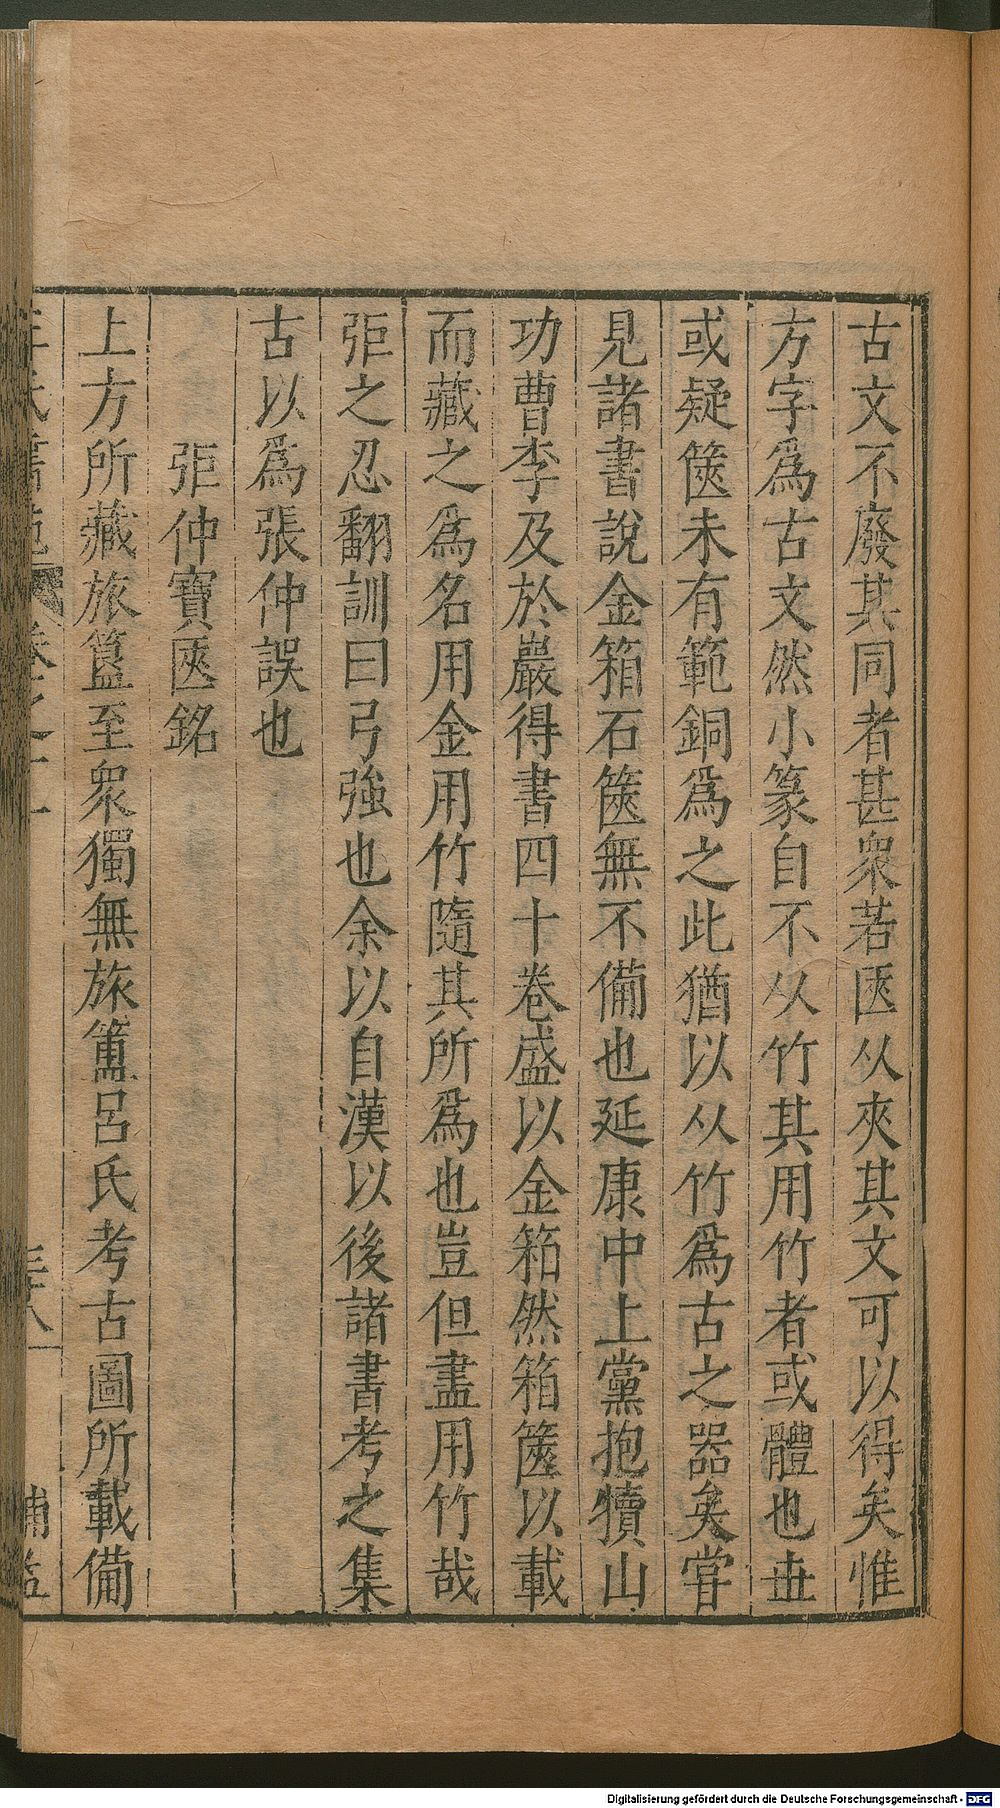 古文不廢其同者甚衆若匧从夾其文可以得矣惟
方字爲古文然小篆自不从竹其用竹者或體也丗
或疑篋未有範銅爲之此猶以从竹爲古之器矣甞
見諸書說金箱石篋無不備也延康中上黨抱犢山
功曹李及於巖得書四十卷盛以金箱然箱篋以載
而藏之爲名用金用竹隨其所爲也豈但盡用竹哉
弡之忍翻訓曰弓強也余以自漢以後諸書考之集
古以爲張仲誤也
弡仲寶匧銘
上方所藏旅簋至衆獨無旅簠呂氏考古圖所載備
王氏書苑 卷之十一 三十八 補益
Digitalisierung gefördert durch die Deutsche Forschungsgemeinschaft - DFG